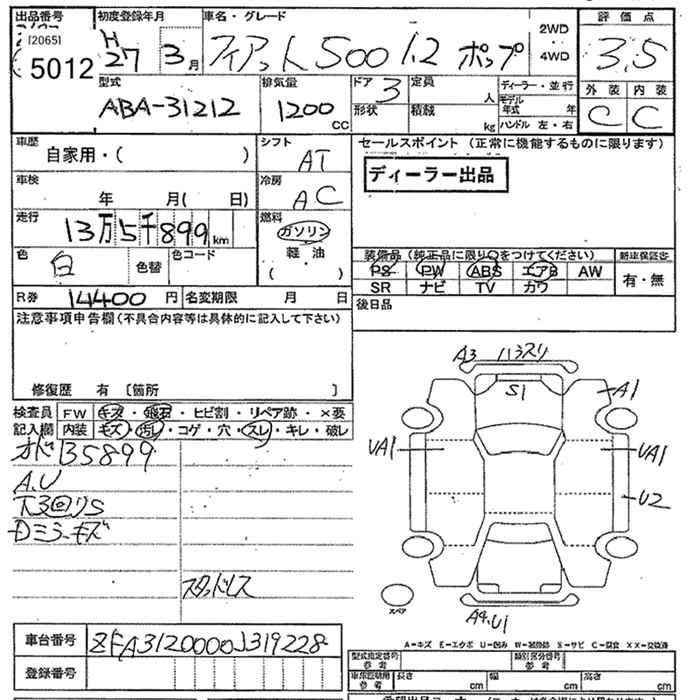 出品番号 初度登録年月 車名・グレード 評価点
[2065]
5012 H27 3月 フィアット500 1.2 ポップ 2WD・4WD 3.5
型式 排気量 ドア 定員 ディーラー・並行 外装 内装
ABA-31212 1200CC 3 人 モデル年式 年 C C
形状 積載 kg ハンドル 左・右
車歴 自家用・( ) シフト AT
セールスポイント (正常に機能するものに限ります)
ディーラー出品
車検 年 月( 日) 冷房 AC
走行 13万5千899km 燃料 ガソリン
軽油
( )
色 白 色替 色コード
装備品 (純正品に限り○をつけてください) 新車保証書
PS PW ABS エアB AW 有・無
SR ナビ TV カワ
R券 14400円 名変期限 月 日
後日品
注意事項申告欄(不具合内容等は具体的に記入して下さい)
修復歴 有 〔箇所 〕
検査員 FW キズ・飛石・ヒビ割・リペア跡・×要
記入欄 内装 キズ・汚レ・コゲ・穴・スレ・キレ・破レ
オド135899
A.U
下3回りS
Dミラーキズ
スタッドレス
A3 ハ3スリ
S1
A1
UA1
UA1
U2
スペア
A4.U1
A=キズ E=エクボ U=凹み W=補修跡 S=サビ C=腐食 XX=交換済
車台番号 ZFA3120000J319228
型式指定番号 参考 類別区分番号 参考
登録番号
車庫証明用 参考 長さ cm 幅 cm 高さ cm